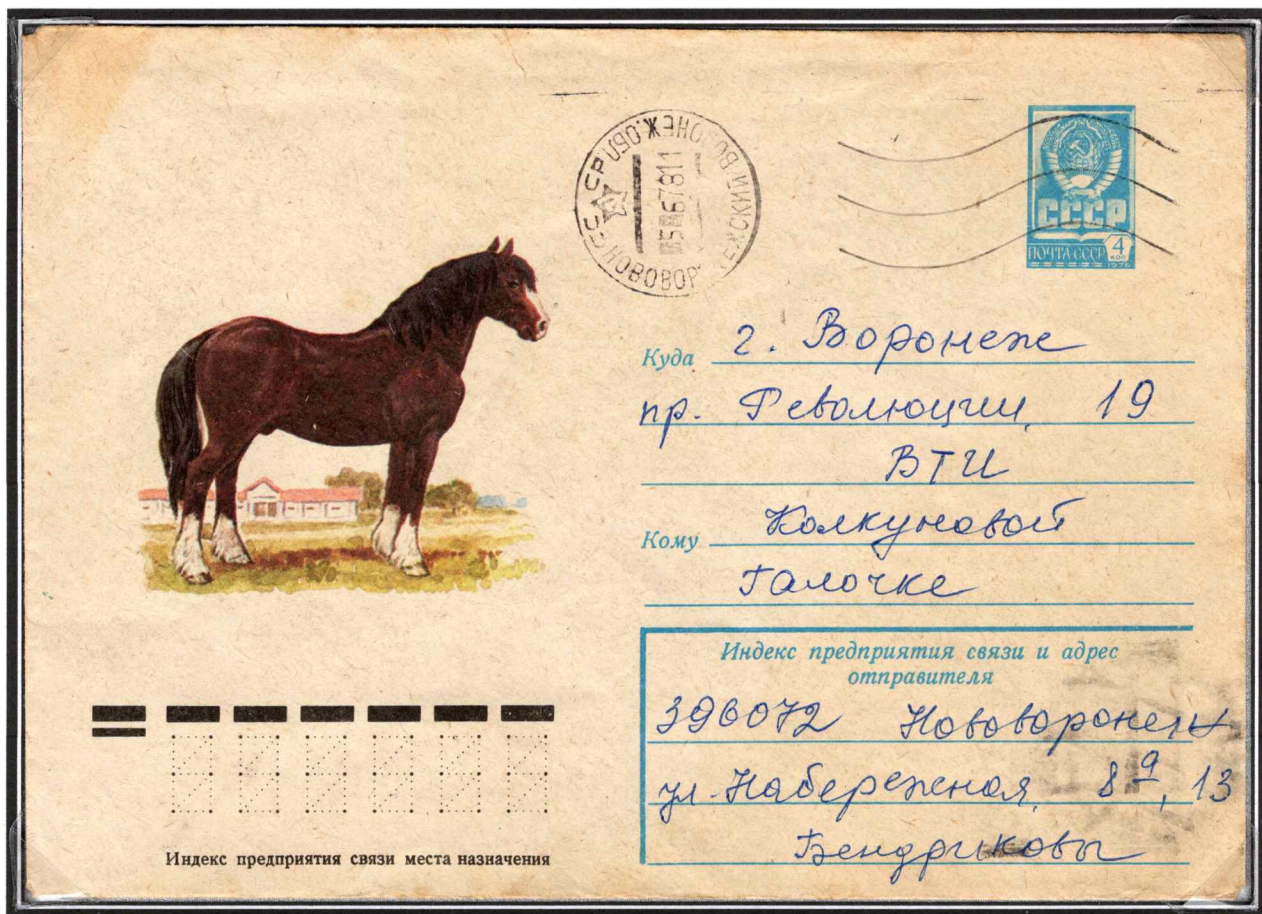 СССР
ПОЧТА СССР 4
КОП
1976
Куда г. Воронеж
пр. Революции, 19
ВТИ
Кому Колкуновой
Галочке
Индекс предприятия связи и адрес
отправителя
396072 Нововоронеж
ул. Набережная, 8а, 13
Бендриковы
Индекс предприятия связи места назначения